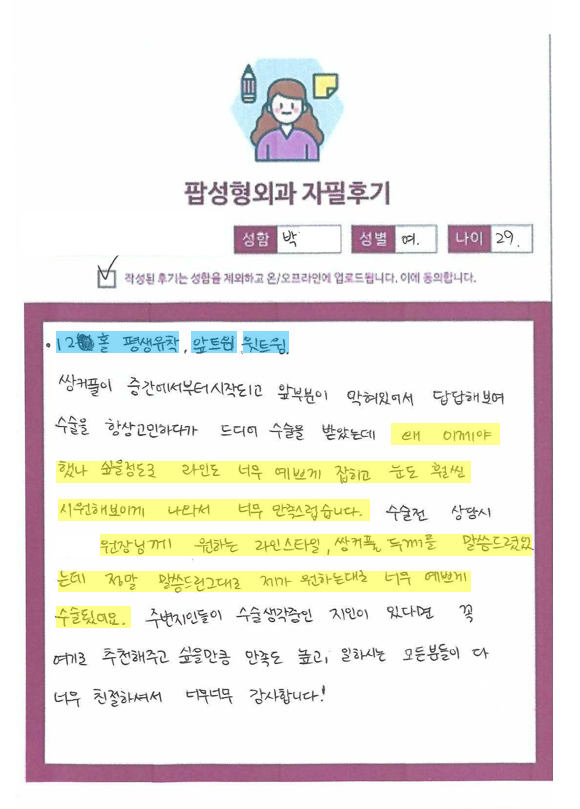 팝성형외과 자필후기
성함 박
성별 여.
나이 29.
작성된 후기는 성함을 제외하고 온/오프라인에 업로드됩니다. 이에 동의합니다.
· 12 홀 평생유착, 앞트임, 윗트임.
쌍커풀이 중간에서부터시작되고 앞부분이 막혀있어서 답답해보여
수술을 항상고민하다가 드디어 수술을 받았는데 왜 이제야
했나 싶을정도로 라인도 너무 예쁘게 잡히고 눈도 훨씬
시원해보이게 나와서 너무 만족스럽습니다. 수술전 상담시
원장님께 원하는 라인스타일, 쌍커풀 두께를 말씀드렸었
는데 정말 말씀드린그대로 제가 원하는대로 너무 예쁘게
수술됐어요. 주변지인들이 수술생각중인 지인이 있다면 꼭
여기로 추천해주고 싶을만큼 만족도 높고, 일하시는 모든분들이 다
너무 친절하셔서 너무너무 감사합니다!